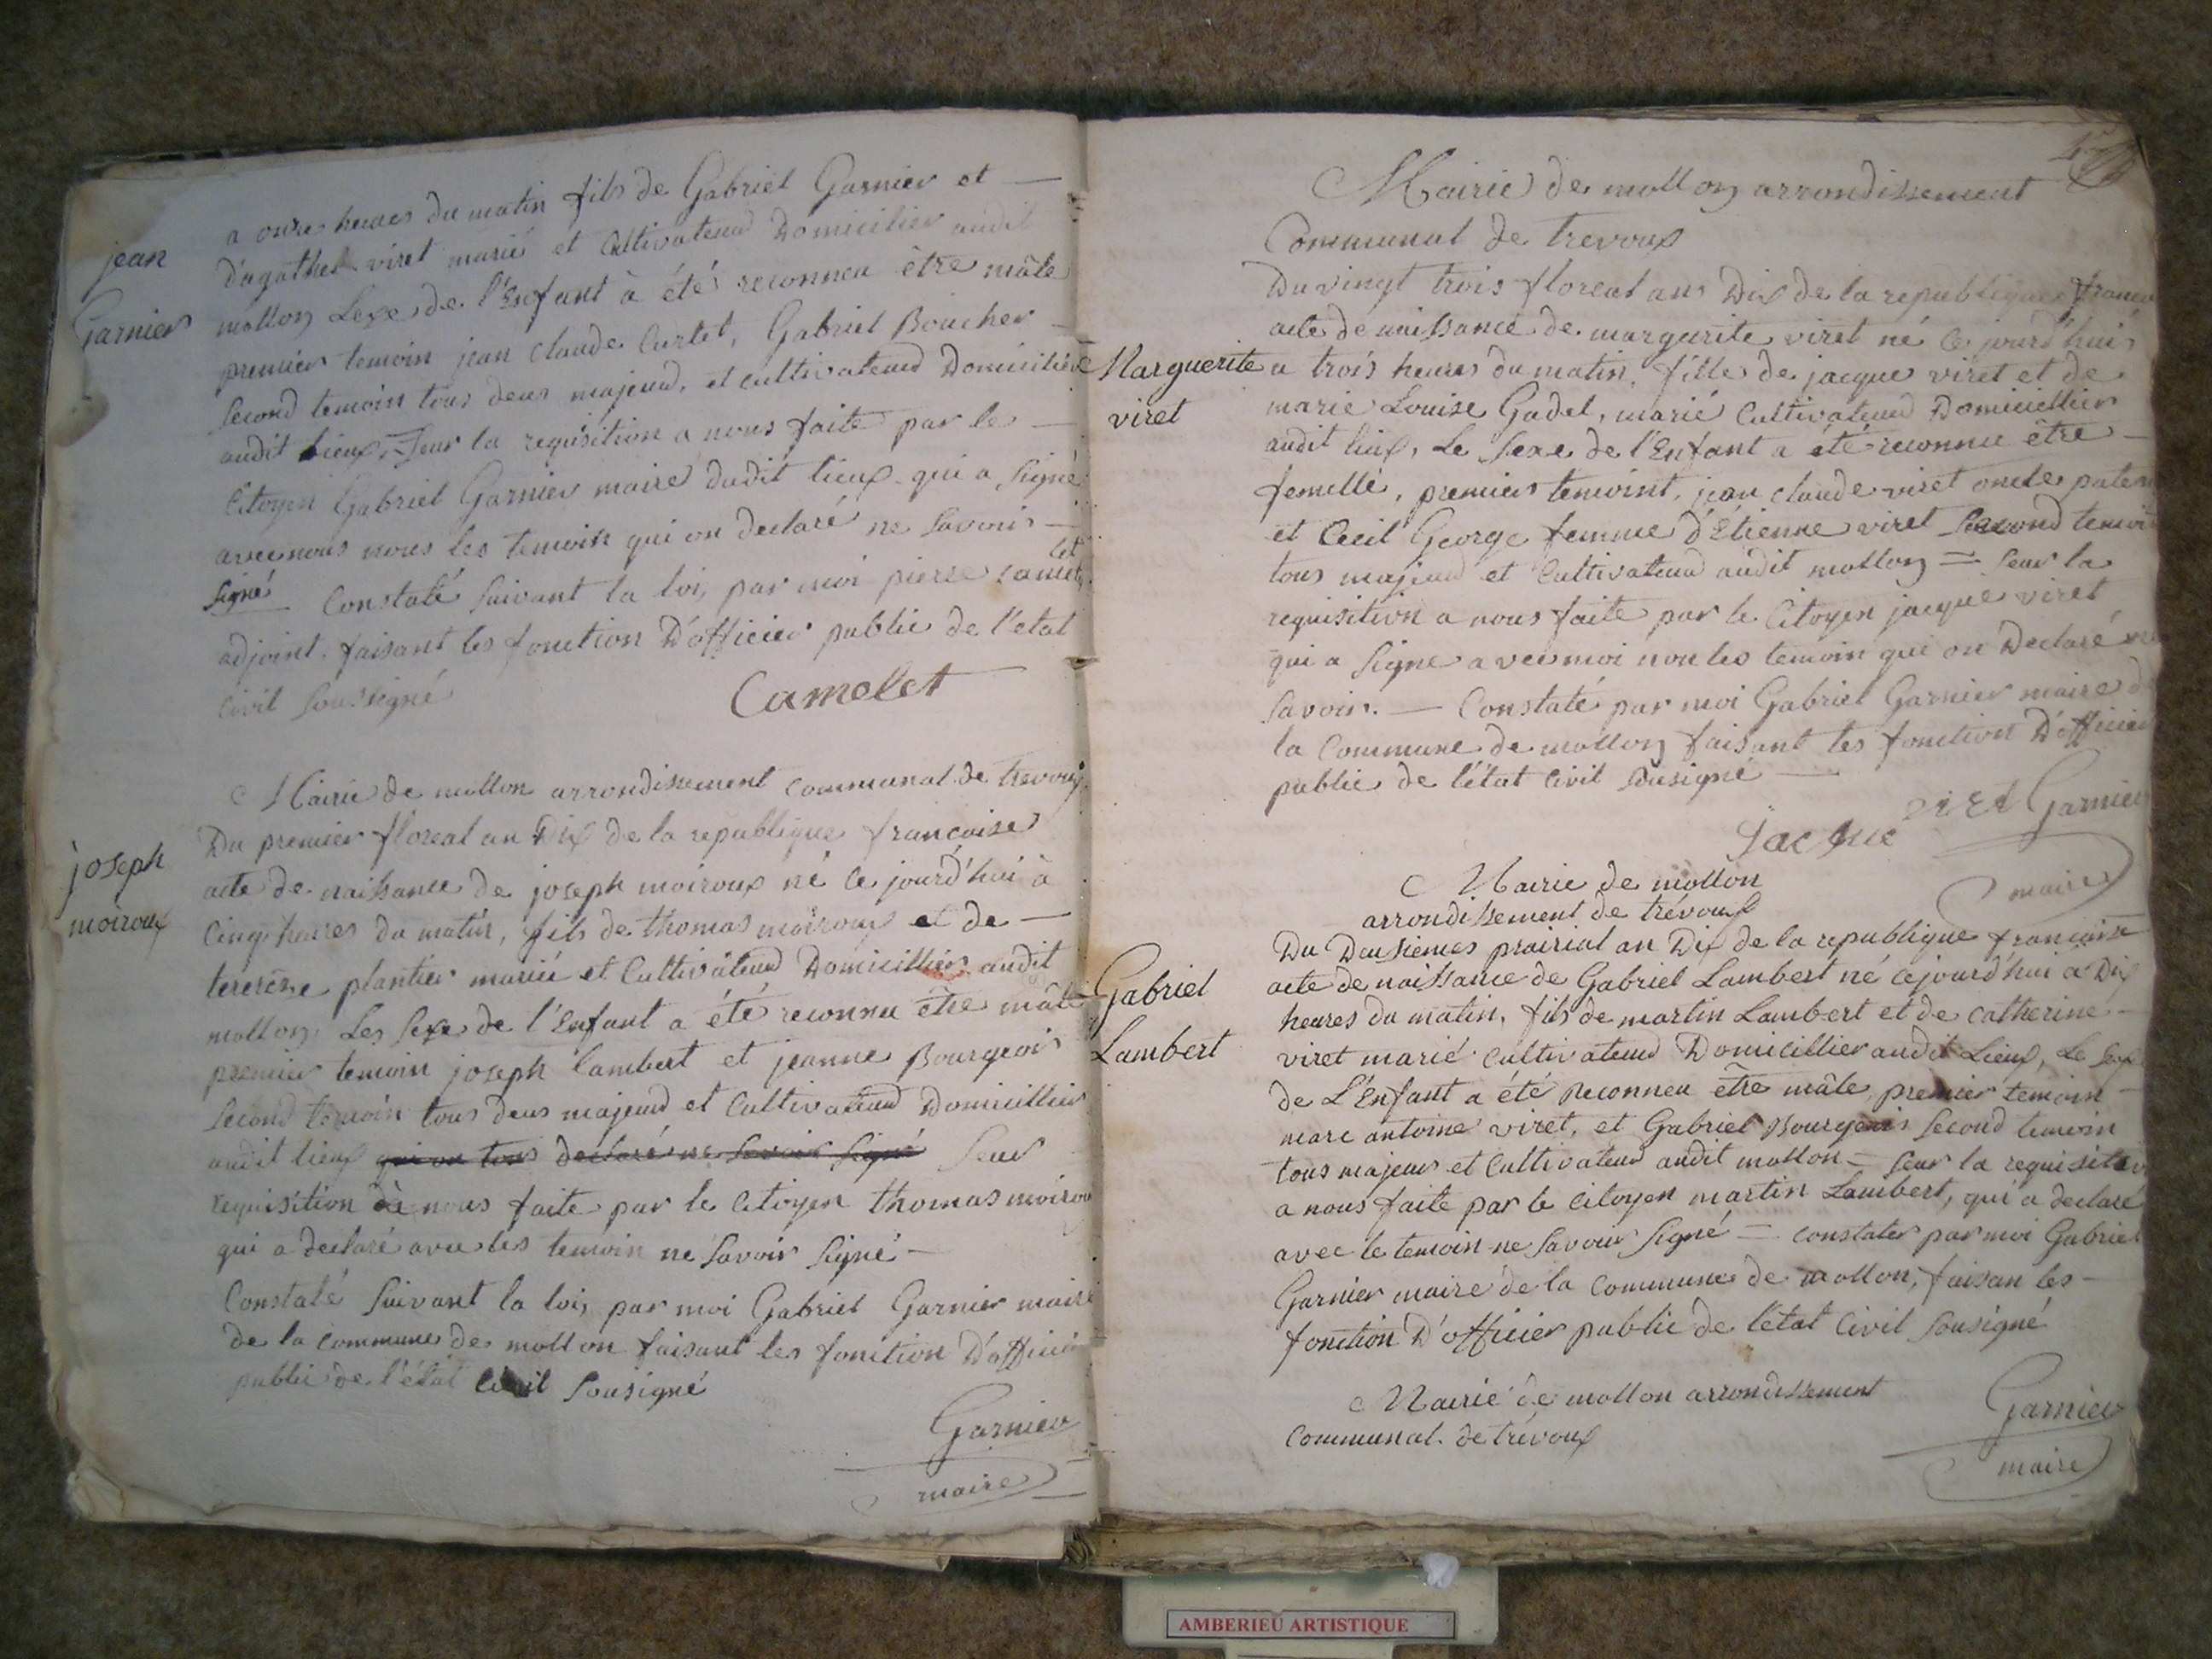 jean
Garnier
a onze heures du matin fils de Gabriel Garnier et —
D'agathe viret marié et Cultivateurd Domicilier audit
mollon Sexe de l'Enfant à été reconneu être mâle
premier temoin jean claude Curtet, Gabriel Boucher —
Second temoin tous deus majeurd, et cultivateurd Domicilié
audit Lieux, = Seur la requisition a nous faite par le —
Citoyen Gabriel Garnier maire dudit lieux qui a Signé
avec nous nous les temoin qui on declaré ne Savoir —
Signé Constaté Suivant la loi, par moi pierre camelet
adjoint faisant les fonction D'officier public de l'état
Civil Soussigné
Camelet
joseph
moiroux
Mairie de mollon arrondissement communal de trevoux
Du premier floreal an Dix de la republique francaise
acte de naissance de joseph moiroux né ce jourd'hui à
Cinq heures du matin, fils de thomas moiroux et de —
tererese plantier mariée et Cultivateurd Domicillier audit
mollon, Les Sexe de l'Enfant a été reconneu être mâle
premier temoin joseph lambert et jeanne Bourgeois
Second temoin tous deus majeurd et Cultivateurd Domicillier
audit lieux qui on tous declaré ne Savoir Signé Seur
requisition à nous faite par le Citoyen thomas moirou
qui a declaré avec les temoin ne Savoir Signé —
Constaté Suivant la loi, par moi Gabriel Garnier maire
de la commune de mollon faisant les fonction D'officier
public de l'état Civil Sousigné
Garnier
maire
Mairie de mollon arrondissement
Communal de trevoux
Du vingt trois floreal ans Dix de la republique francai
acte de naissance de marguerite viret né ce jourd'hui
Marguerite
viret
a trois heures du matin, fille de jacque viret et de
marie Louise Gadel, marié Cultivateurd Domiciellier
audit lieux, Le Sexe de l'Enfant a été reconneu être —
femelle, premier temoint, jean claude viret oncle patern
et Cecil George femme d'Étienne viret Second temoin
tous majeurd et Cultivateurd audit mollon = Seur la
requisition a nous faite par le Citoyen jacque viret
qui a Signe avec moi non les temoin qui on Declaré ne
Savoir. — Constaté par moi Gabriel Garnier maire de
la Commune de mollon faisant les fonction D'officier
public de l'état Civil Sousigné —
Jacque viret Garnier
maire
Mairie de mollon
arrondissement de trévoux
Gabriel
Lambert
Du Deusiemes prairial an Dix de la republique francaise
acte de naissance de Gabriel Lambert né cejourd'hui a Dix
heures du matin, fils de martin Lambert et de Catherine —
viret marié cultivateurd Domicillier audit Lieux, Le Sexe
de L'Enfant a été reconneu être mâle, premier temoin —
marc antoine viret, et Gabriel Bourgeois Second temoin
tous majeur et Cultivateur audit mollon = Seur la requisition
a nous faite par le citoyen martin Lambert, qui a declaré
avec le temoin ne Savoir Signé = constater par moi Gabriel
Garnier maire de la Commune de mollon, faisan les —
fonction D'officier public de l'état Civil Sousigné
Garnier
maire
Mairie de mollon arrondissement
Communal de trévoux
AMBERIEU ARTISTIQUE